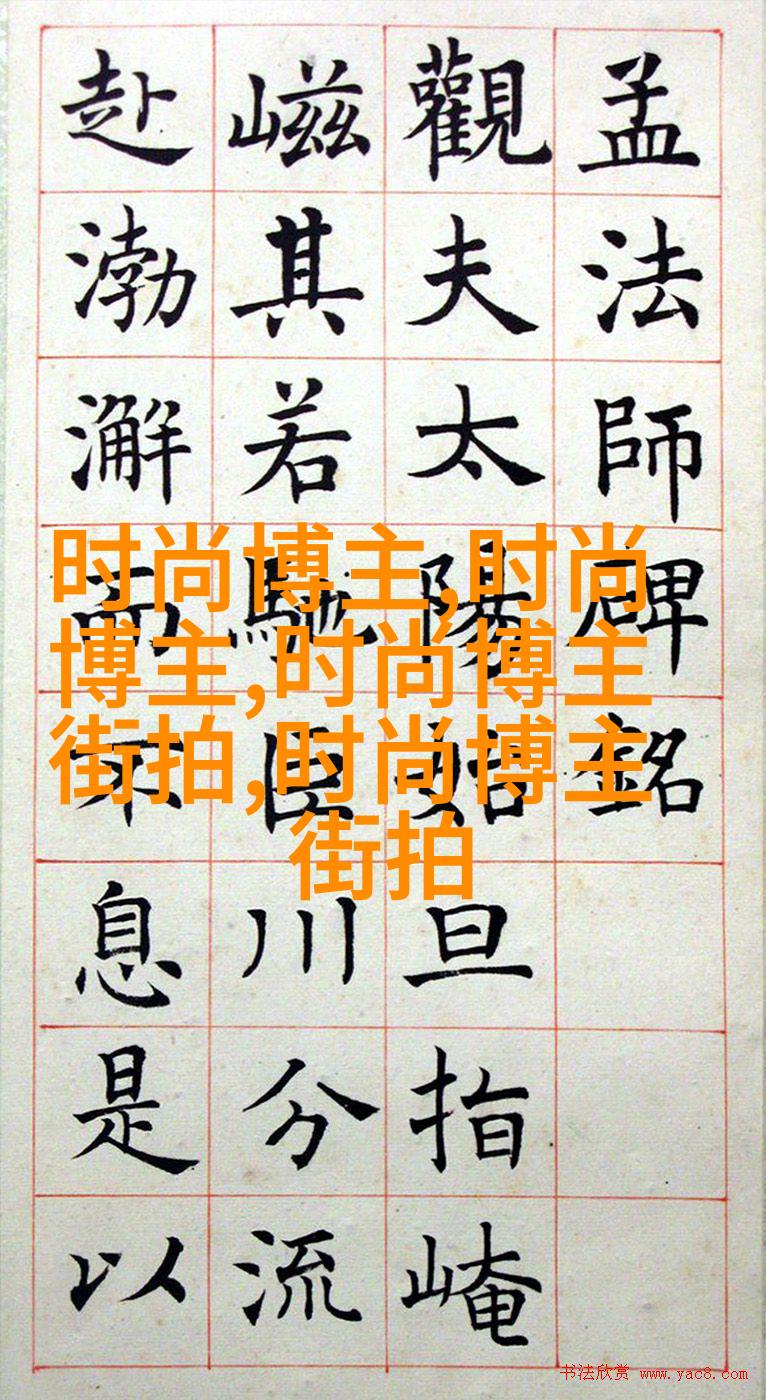 孟法師碑銘
觀夫太陽始旦指崦
嵫其若馳巨川分流
赴渤澥而不息是以
时尚博主,时尚
博主,时尚博主
街拍,时尚博主
街拍
书法欣赏 www.yac8.com